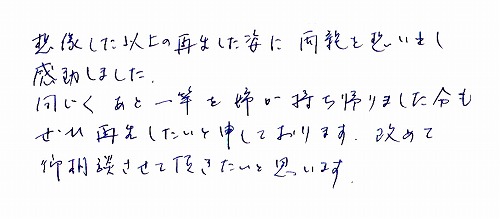 想像した以上の再生した姿に両親を思い出し
感動しました.
同じく あと一竿を姉が持ち帰りました分も
ぜひ再生したいと申しております. 改めて
御相談させて頂きたいと思います.